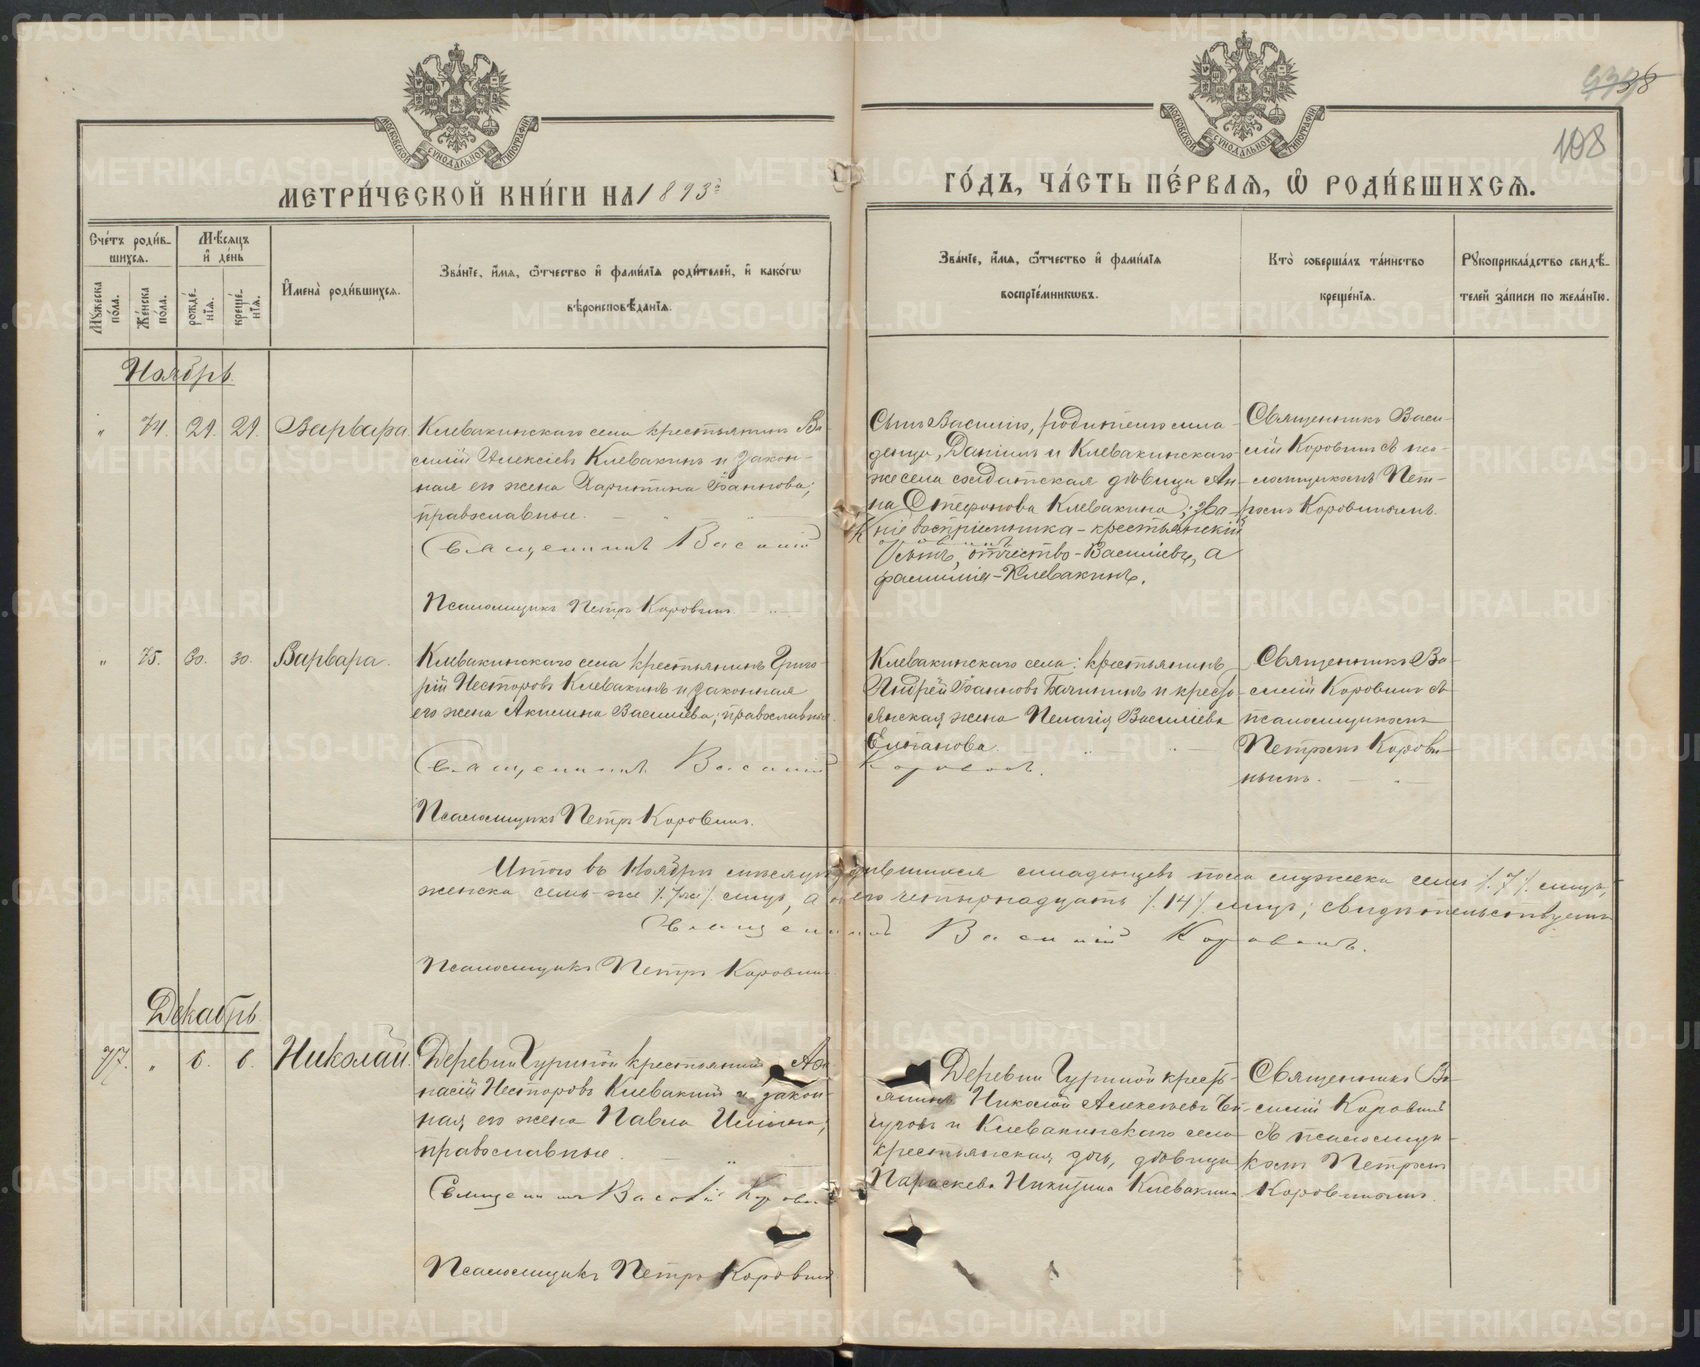 МОСКОВСКОЙ СУНОДАЛЬНОЙ ТИПОГРАФІИ
МОСКОВСКОЙ СУНОДАЛЬНОЙ ТИПОГРАФІИ
108
МЕТРИ́ЧЕСКОЙ КНИ́ГИ НА 1893й
ГО́ДЪ, ЧА́СТЬ ПЕ́РВАЯ, Ѡ РОДИ́ВШИХСЯ.
Сче́тъ роди́в-
шихся.
Мѣ́сяцъ
и҆ де́нь
Мꙋ́жеска
по́ла.
Же́нска
по́ла.
рожде́-
нїѧ.
креще́-
нїѧ.
И҆мена̀ роди́вшихсѧ.
Зва́нїе, и҆́мѧ, ѻ҆́тчество и҆ фами́лїѧ роди́телей, и҆ како́гѡ
вѣроисповѣ́данїѧ.
Зва́нїе, и҆́мѧ, ѻ҆́тчество и҆ фами́лїѧ
воспрїе́мникѡвъ.
Кто̀ соверша́лъ та́инство
креще́нїѧ.
Рꙋкоприкла́дство свидѣ́-
телей за́писи по жела́нїю.
Ноябрь.
" 74. 29. 29. Варвара
Клевакинскаго села крестьянинъ Ва-
силій Алексѣевъ Клевакинъ и закон-
ная его жена Харитина Іаннова;
православные.
Священникъ Василій
Псаломщикъ Петръ Коровинъ.
Сынъ Василія, родителя мла-
денца, Даніилъ и Клевакинскаго
же села солдатская дѣвица Ан-
на Стефанова Клевакина; зва-
ніе воспріемника - крестьянскій
сынъ, отчество - Васильевъ, а
фамилія - Клевакинъ.
Священникъ Васи-
лій Коровинъ съ пса-
ломщикомъ Пет-
ромъ Коровинымъ.
" 75. 30. 30. Варвара.
Клевакинскаго села крестьянинъ Григо-
рій Несторовъ Клевакинъ и законная
его жена Акилина Василіева; православные.
Священникъ Василій
Коровинъ.
Псаломщикъ Петръ Коровинъ.
Клевакинскаго села: крестьянинъ
Андрей Іанновъ Бачининъ и кресть-
янская жена Пелагія Василіева
Священникъ Ва-
силій Коровинъ съ
псаломщикомъ
Петромъ Корови-
нымъ.
Итого въ Ноябрѣ мѣсяцѣ родившихся младенцевъ пола мужеска семь /.7/. лицъ,
женска семь же /.7же/. лицъ, а всего четырнадцать /.14/. лицъ; свидѣтельствуетъ
Священникъ Василій Коровинъ.
Псаломщикъ Петръ Коровинъ
Декабрь.
77. " 6. 6. Николай.
Деревни Гуриной крестьянинъ Аѳа-
насій Несторовъ Клевакинъ и закон-
ная его жена Павла Ильина;
православные.
Священникъ Василій Коровинъ
Псаломщикъ Петръ Коровинъ
Деревни Гуриной кресть-
янинъ Николай Алексѣевъ
и Клевакинскаго села
крестьянская дочь, дѣвица
Параскева Никитина Клевакина.
Священникъ Ва-
силій Коровинъ
съ псаломщи-
комъ Петромъ
Коровинымъ.
METRIKI.GASO-URAL.RU